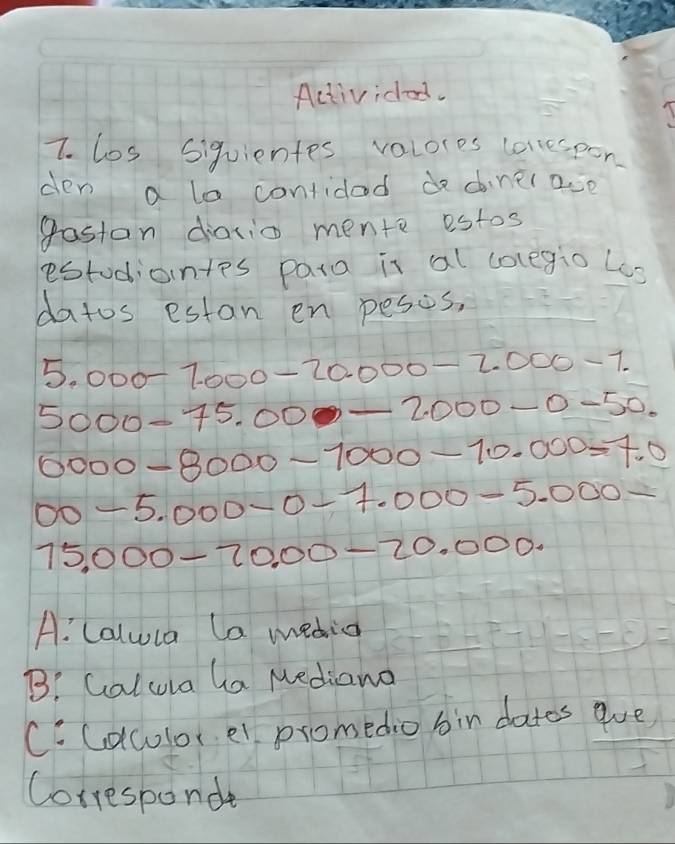 Actividad.
1. Los siguientes valores correspon-
den a la cantidad de diner que
gastan diario mente estos
estudiantes para ir al colegio Los
datos estan en pesos,
5.000-1.000-20.000-2.000-1.
5000-15.000-2.000-0-50.
0000-8000-1000-10.000-7.0
00-5.000-0-1.000-5.000-
15.000-20.00-20.000.
A: Calcula la media
B: Calcula La Mediana
C: Calcular el promedio sin datos que
Corresponde